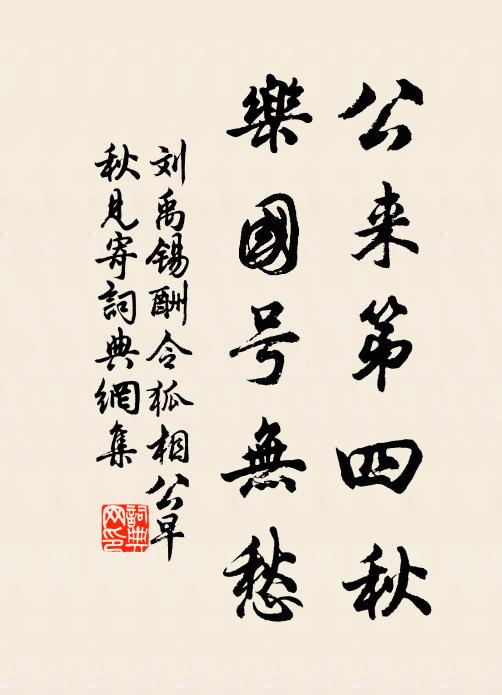 公来第四秋
樂國号無愁
刘禹锡酬令狐相公早
秋見寄詞典網集
詞典
网印